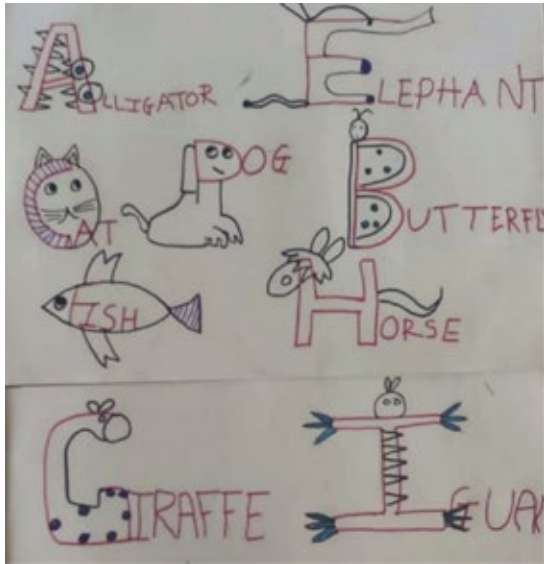 ALLIGATOR ELEPHANT
CAT DOG BUTTERFL
FISH HORSE
GIRAFFE IGUA